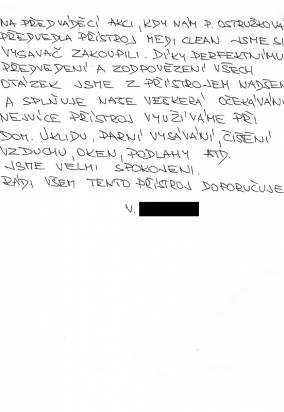 NA PŘEDVÁDĚCÍ AKCI, KDY NÁM P. OSTRUŽKOVÁ
PŘEDVEDLA PŘÍSTROJ MEDI CLEAN JSME SI
VYSAVAČ ZAKOUPILI. DÍKY PERFEKTNÍMU
PŘEDVEDENÍ A ZODPOVĚZENÍ VŠECH
OTÁZEK JSME Z PŘÍSTROJEM NADŠEN
A SPLŇUJE NAŠE VEŠKERÁ OČEKÁVÁNÍ
NEJVÍCE PŘÍSTROJ VYUŽÍVÁME PŘI
DOM. ÚKLIDU, PARNÍ VYSÁVÁNÍ, ČIŠĚNÍ
VZDUCHU, OKEN, PODLAHY ATD.
JSME VELMI SPOKOJENI.
RÁDI VŠEM TENTO PŘÍSTROJ DOPORUČUJE
V.